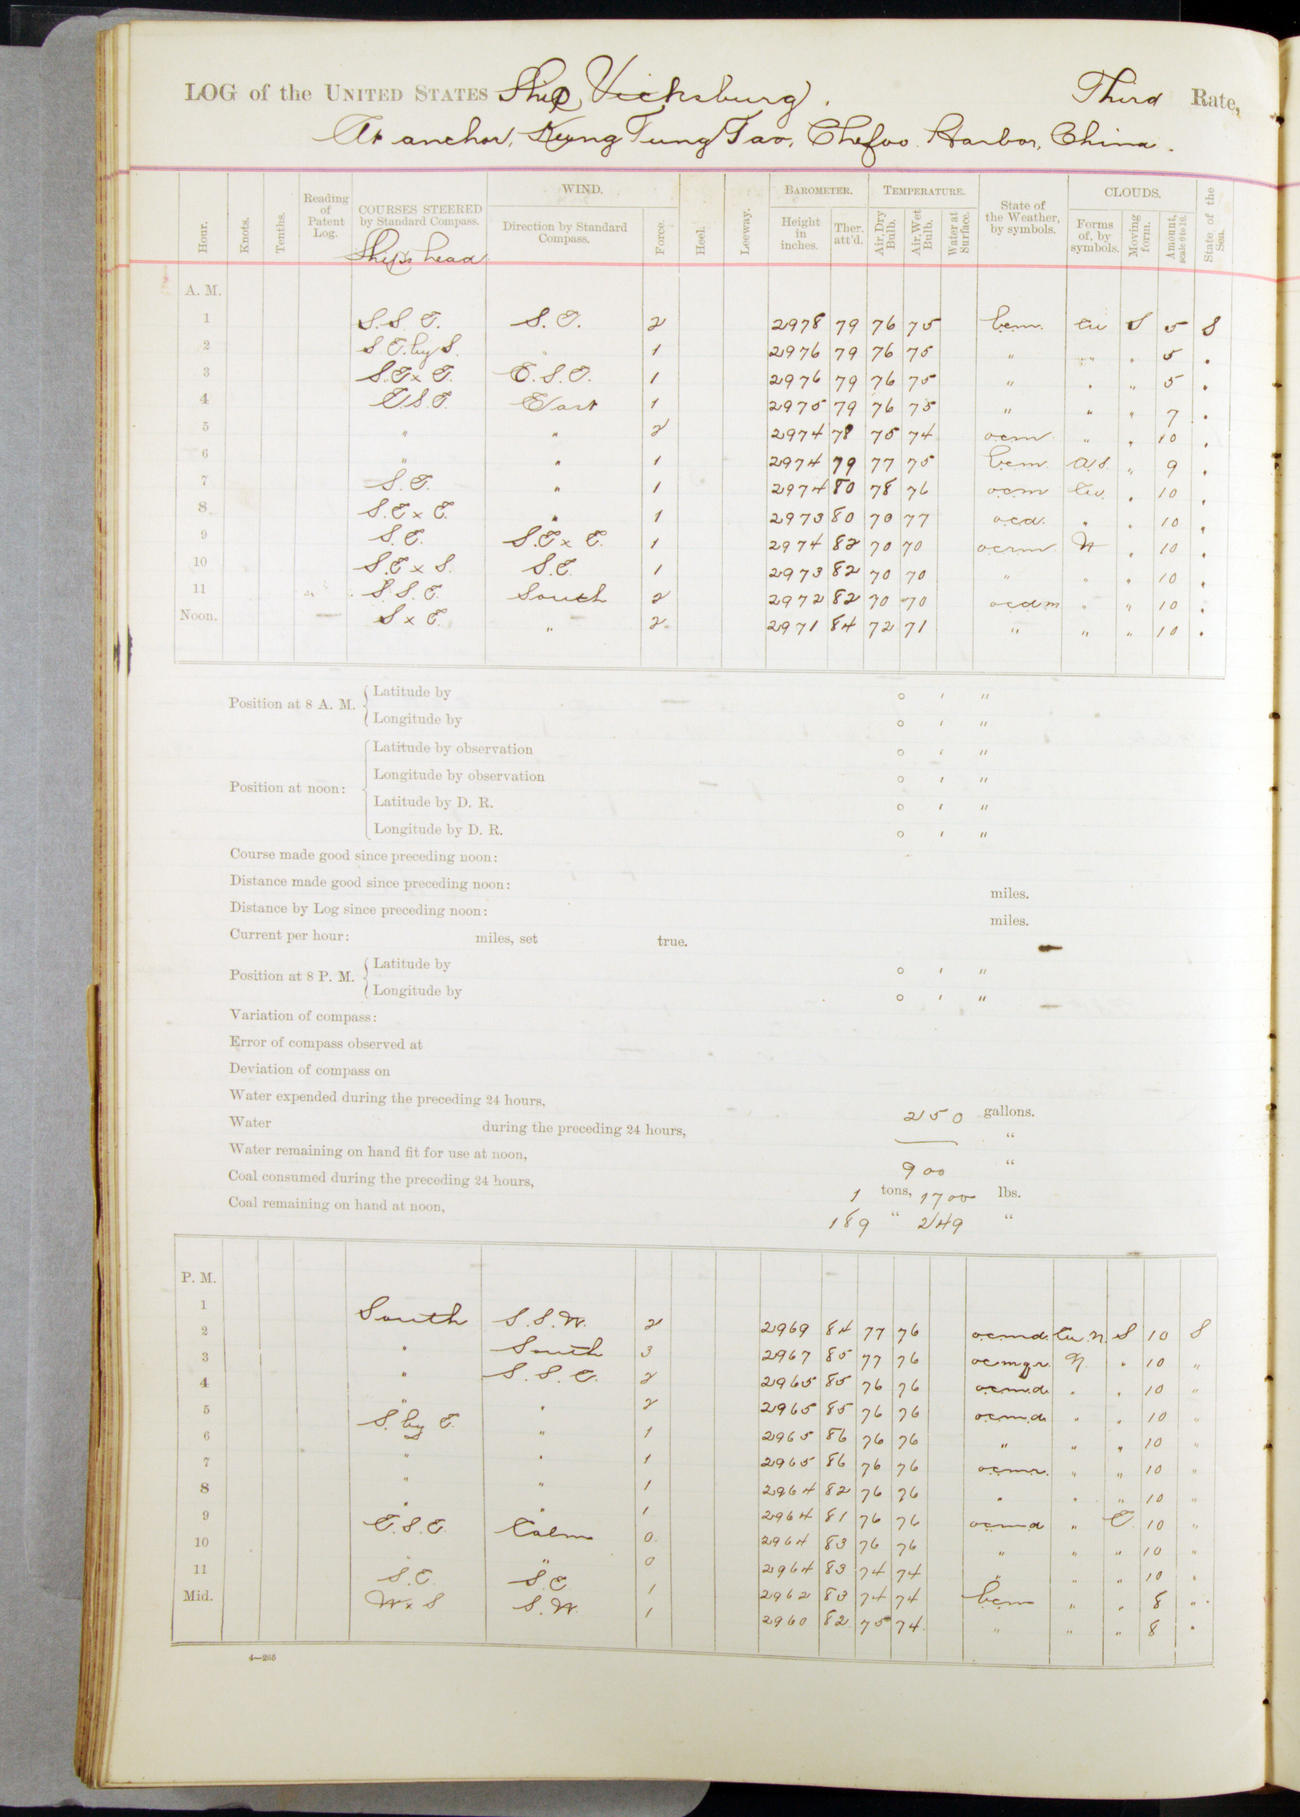 LOG of the UNITED STATES Ship Vicksburg, Third Rate,
At anchor, Kung Tung Tao, Chefoo Harbor, China.
Hour. Knots. Tenths. Reading of Patent Log. COURSES STEERED by Standard Compass. WIND. Direction by Standard Compass. Force. Heel. Leeway. BAROMETER. Height in inches. Ther. att'd. TEMPERATURE. Air, Dry Bulb. Air, Wet Bulb. Water at Surface. State of the Weather, by symbols. CLOUDS. Forms of, by symbols. Moving form. Amount, scale 0 to 10. State of the Sea.
Ship's head
A. M.
1 S.S.E. S.E. 2 2978 79 76 75 bcm. cu S 5 S
2 S.E. by S. " 1 2976 79 76 75 " " " 5 "
3 S.E x E. E.S.E. 1 2976 79 76 75 " " " 5 "
4 E.S.E. East 1 2975 79 76 75 " " " 7 "
5 " " 2 2974 78 75 74 ocm " " 10 "
6 " " 1 2974 79 77 75 bcm. " 9 "
7 S.E. " 1 2974 80 78 76 ocm cu. " 10 "
8 S.E x E. " 1 2973 80 70 77 ocd. " " 10 "
9 S.E. S.E x E. 1 2974 82 70 70 ocrm N " 10 "
10 S.E x S. S.E. 1 2973 82 70 70 " " " 10 "
11 S.S.E. South 2 2972 82 70 70 ocdm " " 10 "
Noon. S x E. " 2 2971 84 72 71 " " " 10 "
Position at 8 A. M. Latitude by ° ' "
Longitude by ° ' "
Position at noon: Latitude by observation ° ' "
Longitude by observation ° ' "
Latitude by D. R. ° ' "
Longitude by D. R. ° ' "
Course made good since preceding noon:
Distance made good since preceding noon: miles.
Distance by Log since preceding noon: miles.
Current per hour: miles, set true.
Position at 8 P. M. Latitude by ° ' "
Longitude by ° ' "
Variation of compass:
Error of compass observed at
Deviation of compass on
Water expended during the preceding 24 hours, 250 gallons.
Water during the preceding 24 hours, — "
Water remaining on hand fit for use at noon, 900 "
Coal consumed during the preceding 24 hours, 1 tons, 1700 lbs.
Coal remaining on hand at noon, 189 " 249 "
P. M.
1 South S.S.W. 2 2969 84 77 76 ocmd. cu.N. S 10 S
2 " South 3 2967 85 77 76 ocmqr. N. " 10 "
3 " S.S.E. 2 2965 85 76 76 ocm.d. " " 10 "
4 " " 2 2965 85 76 76 ocm.d. " " 10 "
5 S. by E. " 1 2965 86 76 76 " " " 10 "
6 " " 1 2965 86 76 76 ocmr. " " 10 "
7 " " 1 2964 82 76 76 " " " 10 "
8 " " 1 2964 81 76 76 ocmd " E. 10 "
9 E.S.E. Calm 0 2964 83 76 76 " " " 10 "
10 " " 0 2964 83 74 74 " " " 10 "
11 S.E. S.E 1 2962 83 74 74 bcm " " 8 "
Mid. W x S S.W. 1 2960 82 75 74 " " " 8 "
4—265